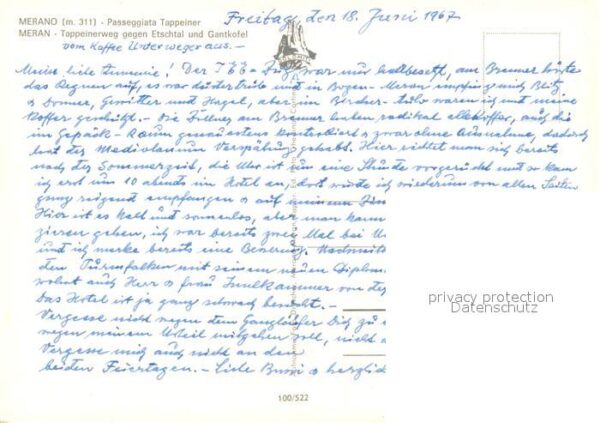 MERANO (m. 311) - Passeggiata Tappeiner
MERAN - Tappeinerweg gegen Etschtal und Gantkofel
Freitag, den 18. Juni 1967
vom Kaffee Unterweger aus. -
Meine liebe ! Der TEE-Zug war nur halbbesetzt, am Brenner hörte
das Regnen auf, es war düster trüb und in Bozen - Meran empfing mich Blitz
& Donner, Gewitter und Hagel, aber im waren ich und meine
Koffer geschützt. - Die Zöllner am Brenner haben radikal alle Koffer, auch die
im Gepäck-Raum genauestens kontrolliert & zwar ohne Ausnahme, dadurch
hat der Mediolanum Verspätung gehabt. Hier richtet man sich bereits
nach der Sommerzeit, die Uhr ist um eine Stunde vorgerückt und so kam
ich erst um 10 abends im Hotel an, dort wurde ich wiederum von allen Seiten
ganz reizend empfangen & auf meinem
Hier ist es kalt und sonnenlos, aber man kann
zieren gehen, ich war bereits zwei Mal bei
und ich merke bereits eine Besserung.
den Turmfalken mit seinem neuen
wohnt auch Herr & Frau von
Das Hotel ist ja ganz schwach besucht. -
Vergesse nicht wegen dem Dich zu
wegen meinem Urteil mitgeben soll, nicht
Vergesse mich auch nicht an den
beiden Feiertagen. - Liebe Bussi & herzlich
privacy protection
Datenschutz
100/522